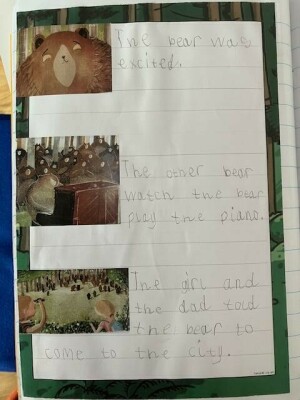 The bear was
excited.
The other bear
watch the bear
play the piano.
The girl and
the dad told
the bear to
come to the city.